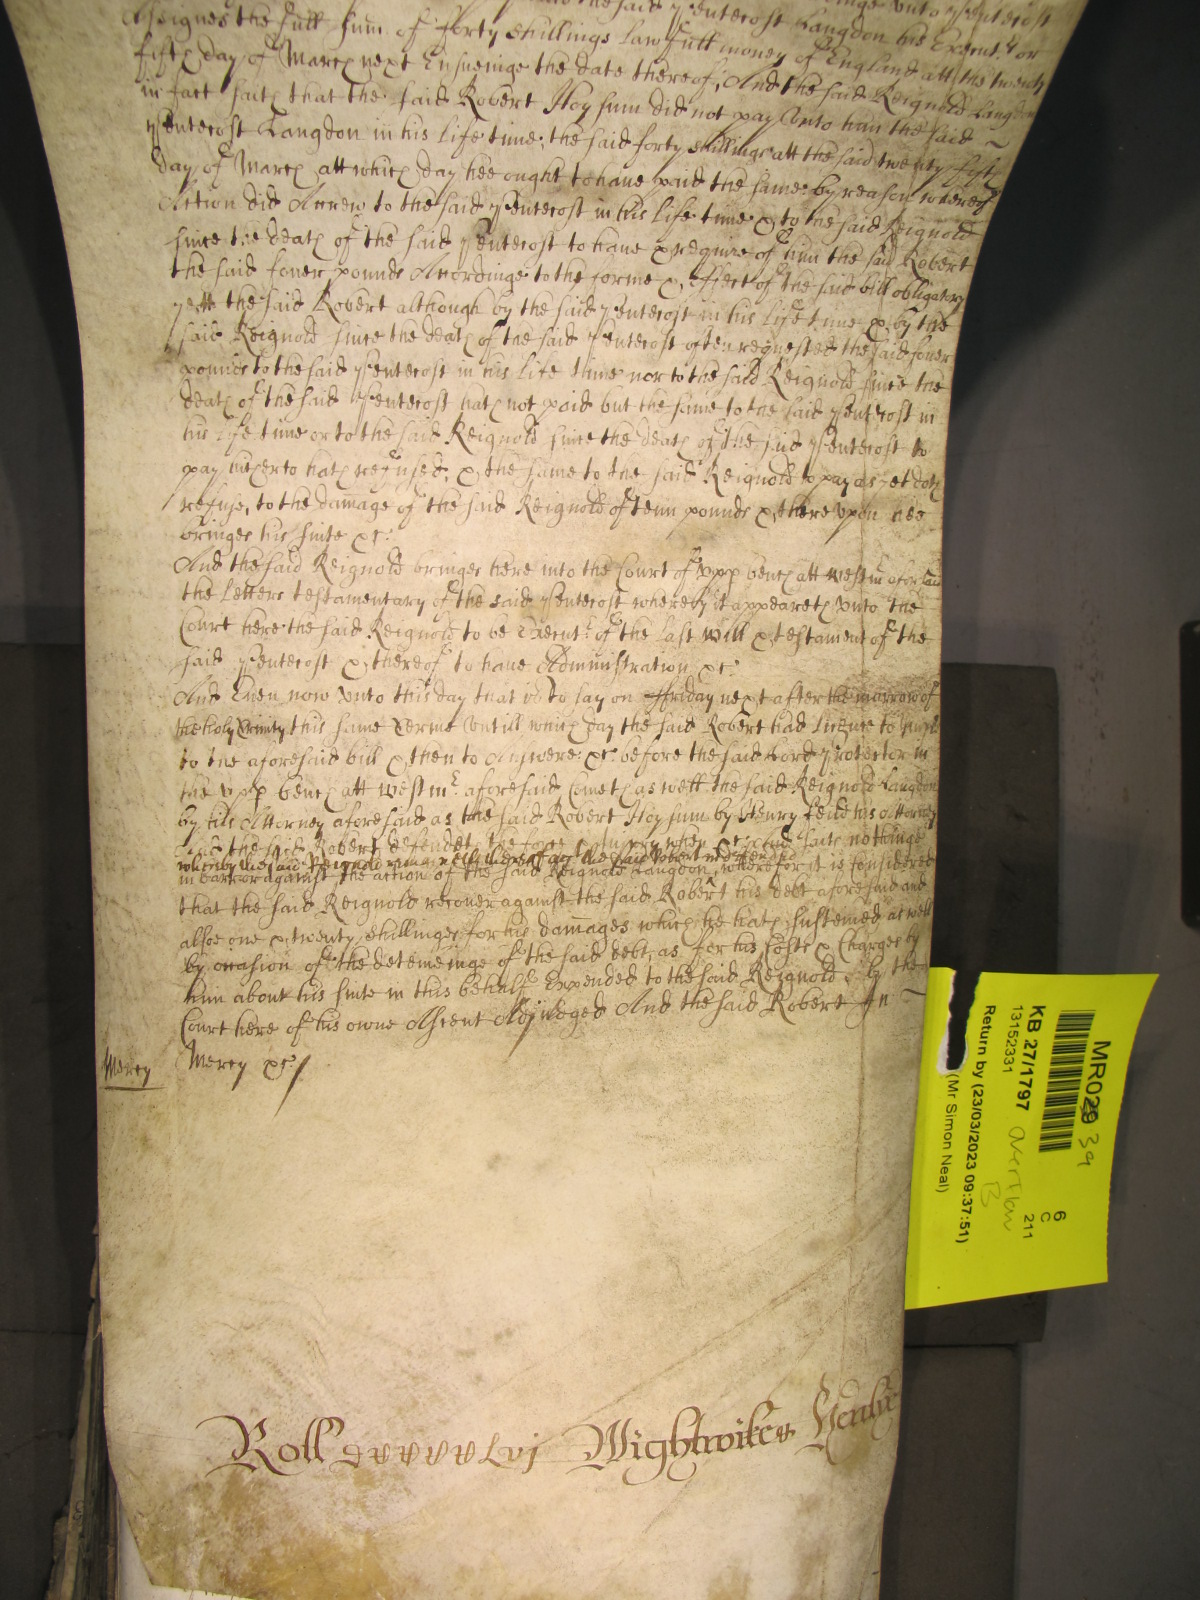 the said Penticost Langdon his Execut.r or
Assignes the full sum of forty shillings lawfull money of England att the twenty
fifth day of March next Ensueinge the date thereof, And the said Reignold Langdon
in fact saith that the said Robert Hoysum did not pay unto him the said
Penticost Langdon in his life time, the said forty shillings att the said twenty fifth
day of March att which day hee ought to have paid the same by reason whereof
Action did Accrew to the said Penticost in his life time & to the said Reignold
since the death of the said Penticost to have & require of him the said Robert
the said fower pounds Accordinge to the forme & effect of the said bill obligatory
yett the said Robert although by the said Penticost in his life time & by the
said Reignold since the death of the said Penticost often requested the said fower
pounds to the said Penticost in his life time nor to the said Reignold since the
death of the said Penticost hath not paid but the same to the said Penticost in
his life time or to the said Reignold since the death of the said Penticost to
pay hitherto hath refused, & the same to the said Reignold to pay as yet doth
refuse, to the damage of the said Reignold of tenn pounds & thereupon hee
bringes his suite &c:
And the said Reignold bringes here into the Court of upp bench att westm aforesaid
the letters testamentary of the said Penticost whereby it appeareth unto the
Court here the said Reignold to be Execut.r of the last will & testament of the
said Penticost & thereof to have Administration &c:
And Even now unto this day that is to say on ffriday next after the morrow of
the holy Trinity this same Terme untill which day the said Robert had licence to imple
to the aforesaid bill & then to Answere &c: before the said Lord Protector in
the upp bench att westm.r aforesaid Cometh as well the said Reignold Langdon
by his Attorney aforesaid as the said Robert Hoysum by Henry his Attorney
And the said Robert defendeth the force & Injury when &c: And saith nothinge
whereby the said Reignold remaineth thereof ag the said Robert undefended
in barr or against the action of the said Reignold Langdon, wherefore it is considered
that the said Reignold recover against the said Robert his debt aforesaid and
alsoe one & twenty shillinges for his damages which he hath susteined as well
by occasion of the deteineinge of the said debt, as for his Costs & Charges by
him about his suite in this behalf Expended to the said Reignold by the
Court here of his owne Assent Adjudged And the said Robert In
Mercy Mercy &c:
Roll Wightwike
MR029 39
KB 27/1797
13152331
Overflow
B
6
C
211
Return by (23/03/2023 09:37:51)
(Mr Simon Neal)